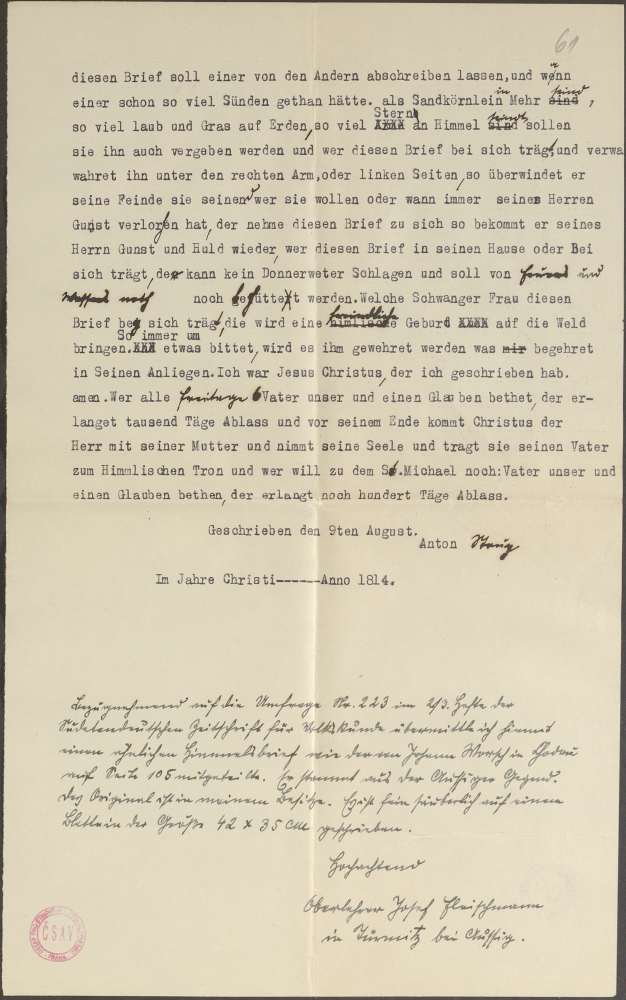 61
diesen Brief soll einer von den Andern abschreiben lassen,und wenn
einer schon so viel Sünden gethan hätte. als Sandkörnlein in Mehr seind,
so viel laub und Gras auf Erden,so viel Stern an Himmel seindt sollen
sie ihn auch vergeben werden und wer diesen Brief bei sich trägt,und verwa
wahret ihn unter den rechten Arm,oder linken Seiten,so überwindet er
seine Feinde sie seinen wer sie wollen oder wann immer seines Herren
Gunst verlohen hat,der nehme diesen Brief zu sich so bekommt er seines
Herrn Gunst und Huld wieder,wer diesen Brief in seinen Hause oder Bei
sich trägt,der kann kein Donnerweter Schlagen und soll von Feuers und
Wassers noth noch behüttet werden.Welche Schwanger Frau diesen
Brief bey sich trägt,die wird eine freindliche Geburd auf die Weld
bringen.So immer um etwas bittet,wird es ihm gewehret werden was begehret
in Seinen Anliegen.Ich war Jesus Christus,der ich geschrieben hab.
amen.Wer alle Freitage 6 Vater unser und einen Glauben bethet,der er-
langet tausend Täge Ablass und vor seinem Ende kommt Christus der
Herr mit seiner Mutter und nimmt seine Seele und tragt sie seinen Vater
zum Himmlischen Tron und wer will zu dem St.Michael noch:Vater unser und
einen Glauben bethen,der erlangt noch hundert Täge Ablass.
Geschrieben den 9ten August.
Anton
Im Jahre Christi------Anno 1814.
Bezugnehmend auf die Umfrage Nr. 223 im 2/3. Hefte der
Sudetendeutschen Zeitschrift für Volkskunde übermittle ich hiemit
einen ähnlichen Himmelsbrief wie der von Johann Worsch in Chodau
auf Seite 105 mitgeteilte. Er stammt aus der Aussiger Gegend.
Das Original ist in meinem Besitze. Es ist fein säuberlich auf einem
Blatte in der Größe 42 x 35 cm geschrieben.
Hochachtend
Oberlehrer Josef Fleischmann
in Türmitz bei Aussig.
ČSAV